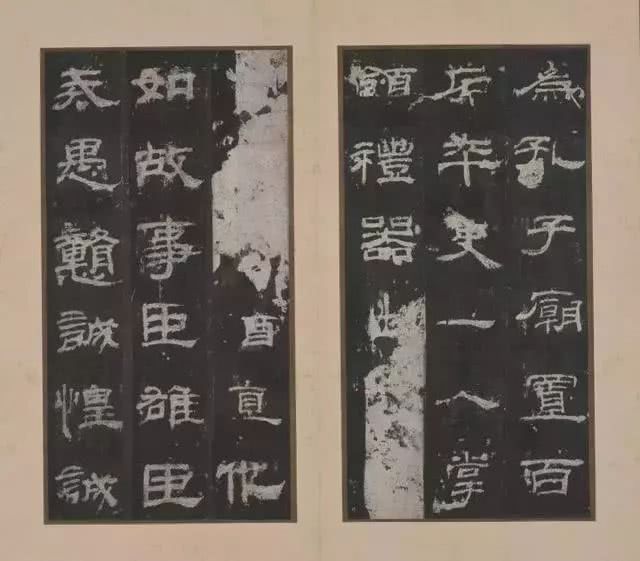 為孔子廟置百
石卒史一人掌
領禮器出
酒直他
如故事臣雄臣
戒愚戇誠惶誠